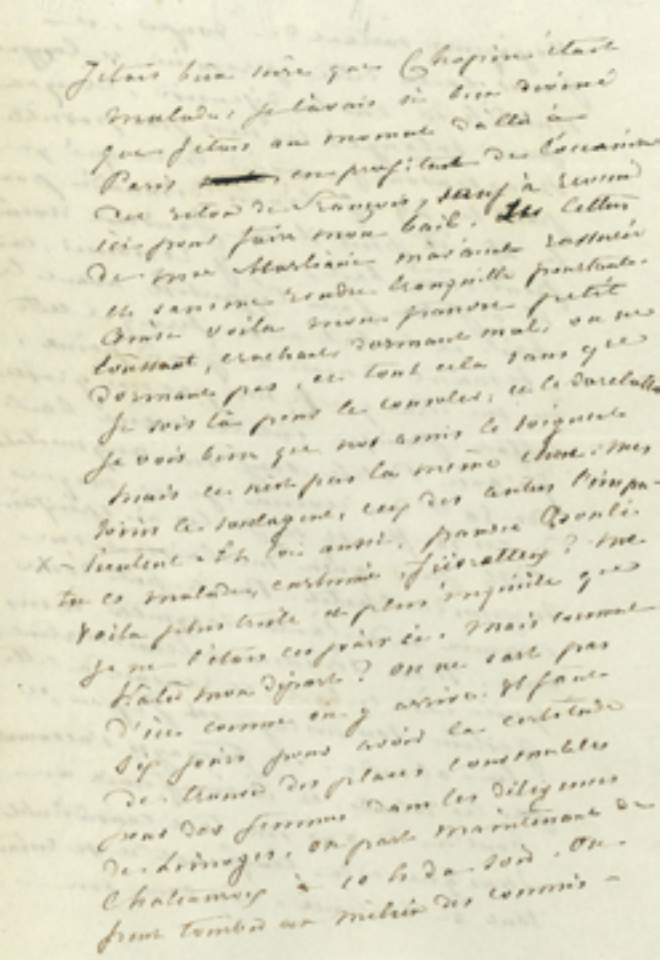 J'étais bien sûre que Chopin était
malade, je l'avais si bien deviné
que j'étais au moment d'allà à
Paris en profitant de l'occasion
du retour de François, sauf à revenir
ici pour faire mon bail. Les lettres
de me Marliani m'avaient rassurée
et sans me rendre tranquille pourtant.
Ainsi voila mon pauvre petit
toussant, crachant dormant mal, ou ne
dormant pas, et tout cela sans que
je sois là pour le consoler, et le dorelotter
Je vois bien que nos amis le soignent
mais ce n'est pas la même chose. mes
soins le soulagent, ceux des autres l'impa-
tientent. Et toi aussi, pauvre
tu es malade, enrhumé, ? me
voila plus triste et plus inquiète que
je ne l'étais ces jours ci. Mais comment
hater mon départ? On ne part pas
d'ici comme on y arrive. Il faut
dix jours pour avoir la certitude
de trouver des places convenables
pour des femmes dans les diligences
de Limoges. On part maintenant de
Chateauroux à 10 h. du soir. On
peut tomber au milieu des commis-